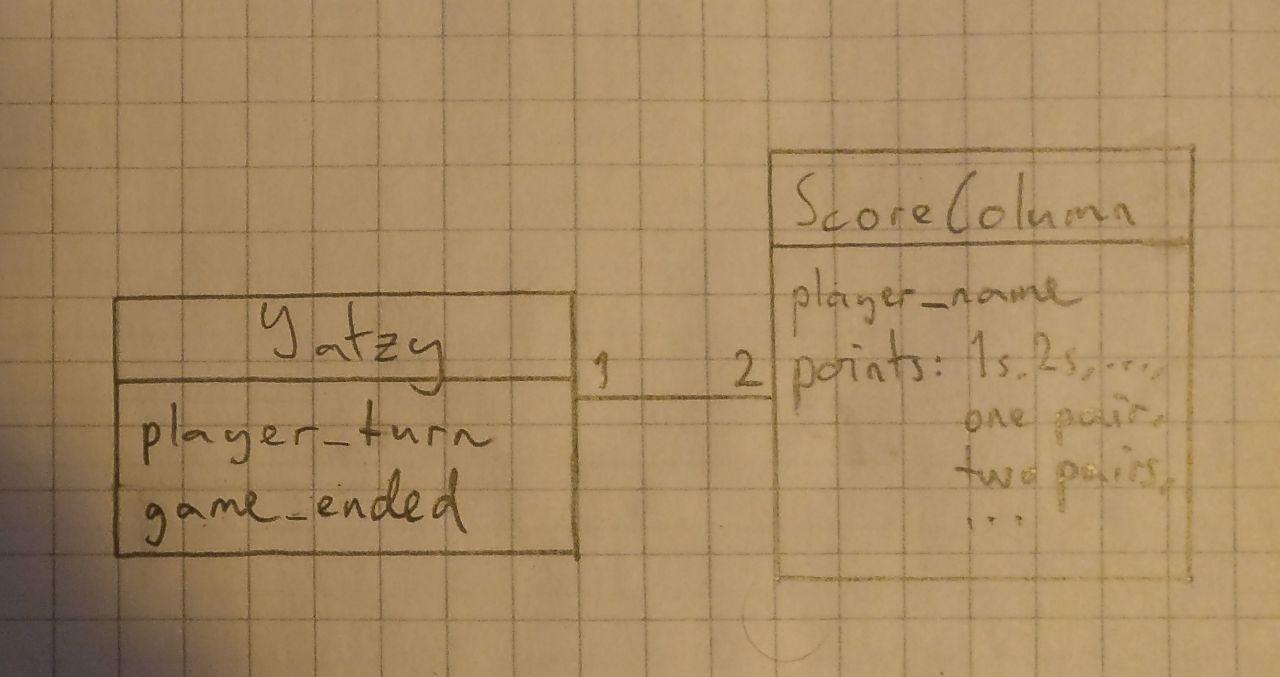 Yatzy
player_turn
game_ended
1
2
ScoreColumn
player_name
points: 1s, 2s, ...,
one pair,
two pairs,
...